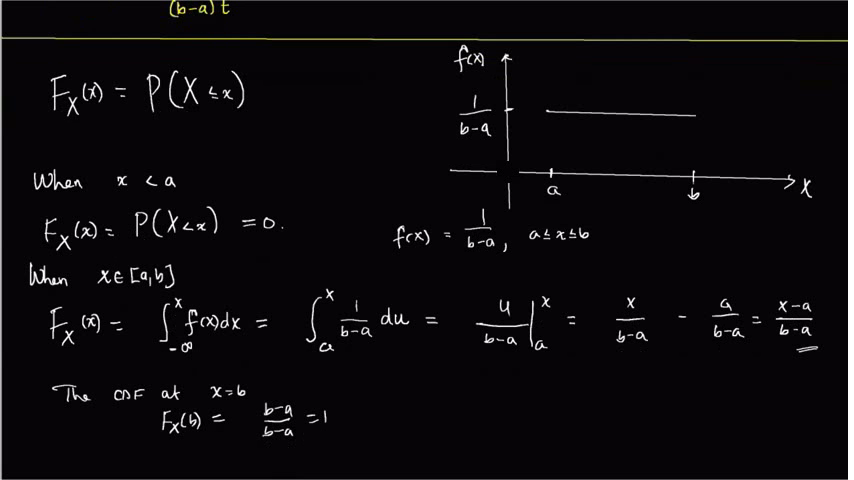 (b-a) t
F_X(x) = P(X ≤ x)
f(x)
1/(b-a)
a
b
X
f(x) = 1/(b-a), a ≤ x ≤ b
When x < a
F_X(x) = P(X < x) = 0.
When x ∈ [a,b]
F_X(x) = ∫_{-∞}^{x} f(x)dx = ∫_{a}^{x} 1/(b-a) du = u/(b-a) |_{a}^{x} = x/(b-a) - a/(b-a) = (x-a)/(b-a)
The CDF at x=b
F_X(b) = (b-a)/(b-a) = 1